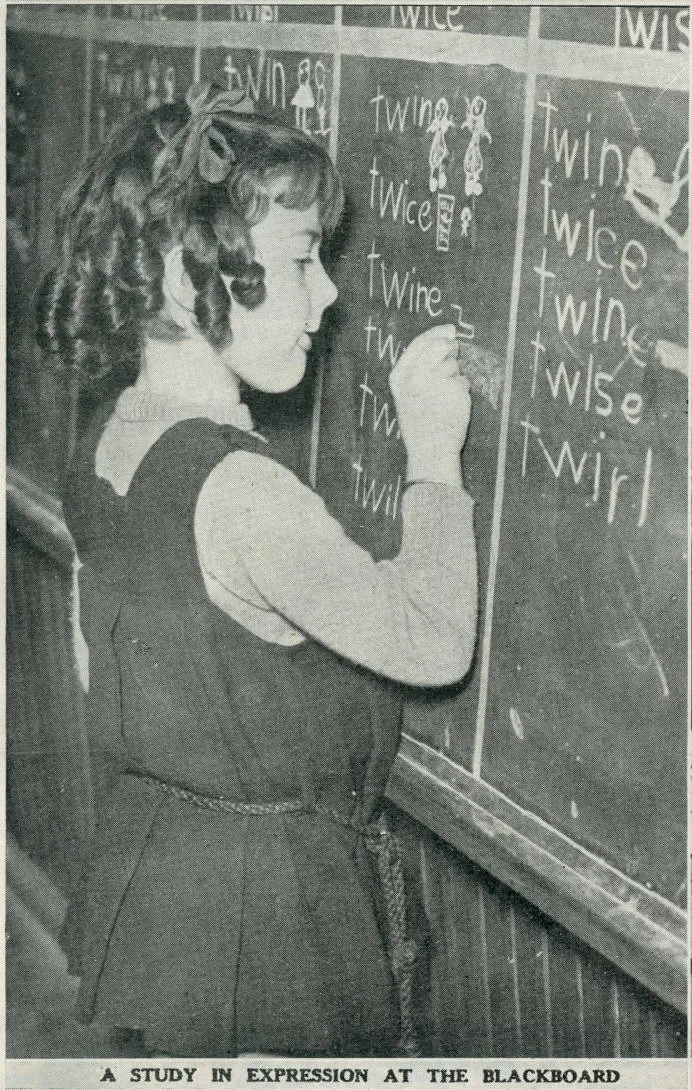 twice
twin
twin
twice
twine
twin
twice
twine
twise
twirl
A STUDY IN EXPRESSION AT THE BLACKBOARD